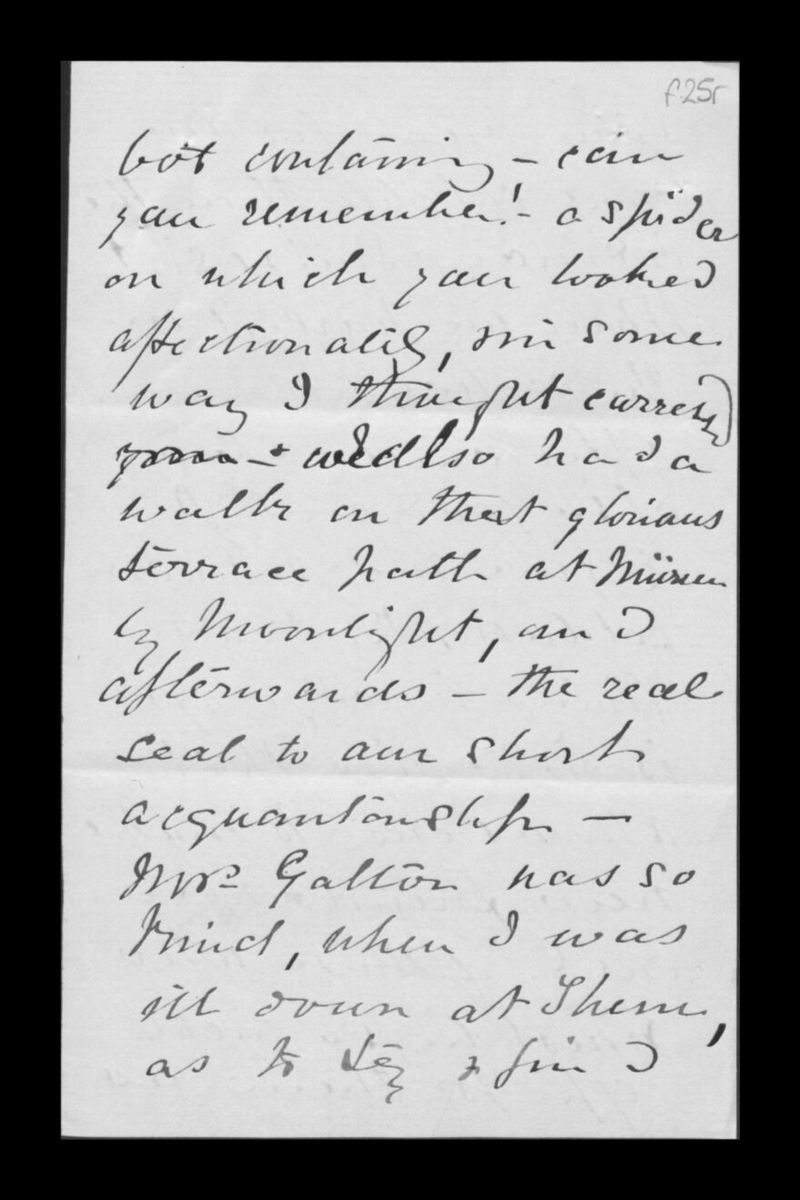 f.25r
bot containing – can
you remember! – a spider
on which you looked
affectionately, in some
way I thought carressed
– & we also had a
walk on that glorious
terrace path at Mürren
by Moonlight, and
afterwards – the real
seal to our short
acquantonship –
Mrs Galton was so
kind, when I was
ill down at Thun,
as to try & find